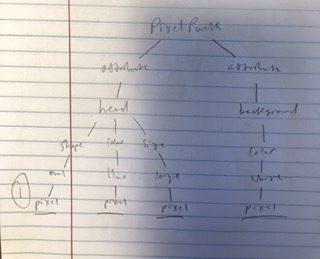 PixelPunk
attribute attribute
head background
shape color size color
oval blue large white
① pixel pixel pixel pixel